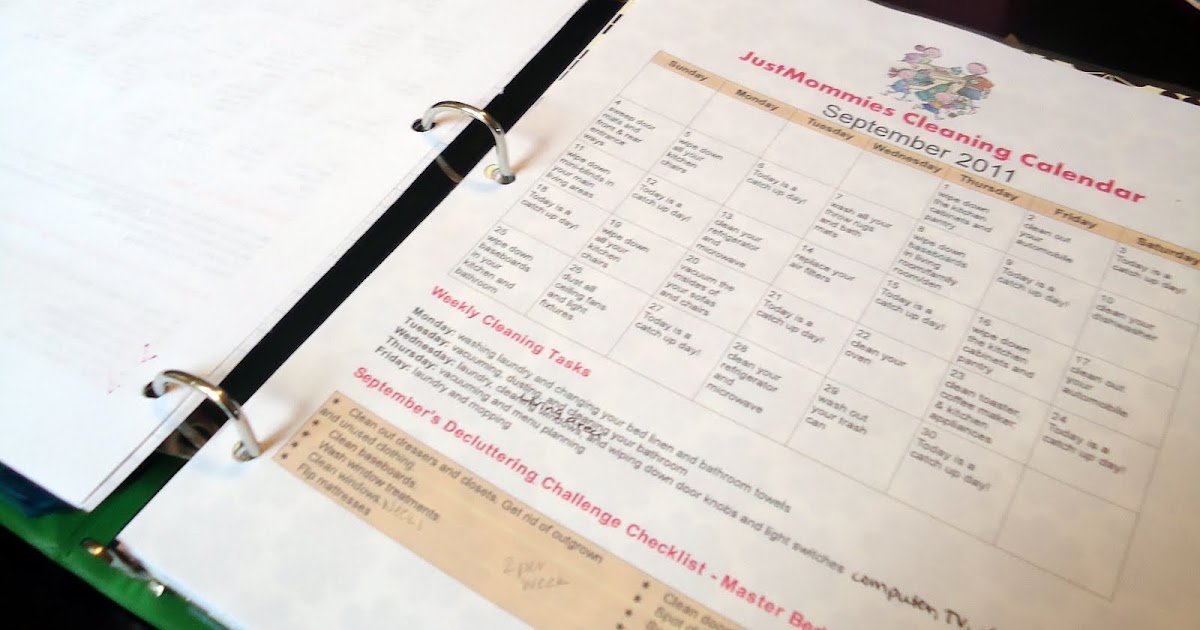 JustMommies Cleaning Calendar
September 2011
Sunday
Monday
Tuesday
Wednesday
Thursday
Friday
Saturday
1
wipe down
the kitchen
cabinets and
pantry
2
clean out
your
automobile
3
Today is a
catch up day!
4
sweep door
mats and
front & rear
entrance
ways
5
wipe down
all your
kitchen
chairs
6
Today is a
catch up day!
7
wash all your
throw rugs
and bath
mats
8
wipe down
baseboards
in living
room/family
room/den
9
Today is a
catch up day!
10
clean your
dishwasher
11
wipe down
mini-blinds in
your main
living areas
12
Today is a
catch up day!
13
clean your
refrigerator
and
microwave
14
replace your
air filters
15
Today is a
catch up day!
16
wipe down
the kitchen
cabinets and
pantry
17
clean out
your
automobile
18
Today is a
catch up day!
19
wipe down
all your
kitchen
chairs
20
vacuum the
insides of
your sofas
and chairs
21
Today is a
catch up day!
22
clean your
oven
23
clean toaster,
coffee maker,
& kitchen
appliances
24
Today is a
catch up day!
25
wipe down
baseboards
in your
kitchen and
bathroom
26
dust all
ceiling fans
and light
fixtures
27
Today is a
catch up day!
28
clean your
refrigerator
and
microwave
29
wash out
your trash
can
30
Today is a
catch up day!
Weekly Cleaning Tasks
Monday: washing laundry and changing your bed linen and bathroom towels
Tuesday: vacuuming, dusting, and cleaning your bathroom
Wednesday: laundry, cleaning windows, and wiping down door knobs and light switches computer, TV,
Thursday: vacuuming and menu planning
Friday: laundry and mopping
September's Decluttering Challenge Checklist - Master Bed
• Clean out dressers and closets. Get rid of outgrown
and unused clothing
• Clean baseboards.
• Wash window treatments
• Clean windows.
• Flip mattresses
2 per
week
• Clean
• Spot